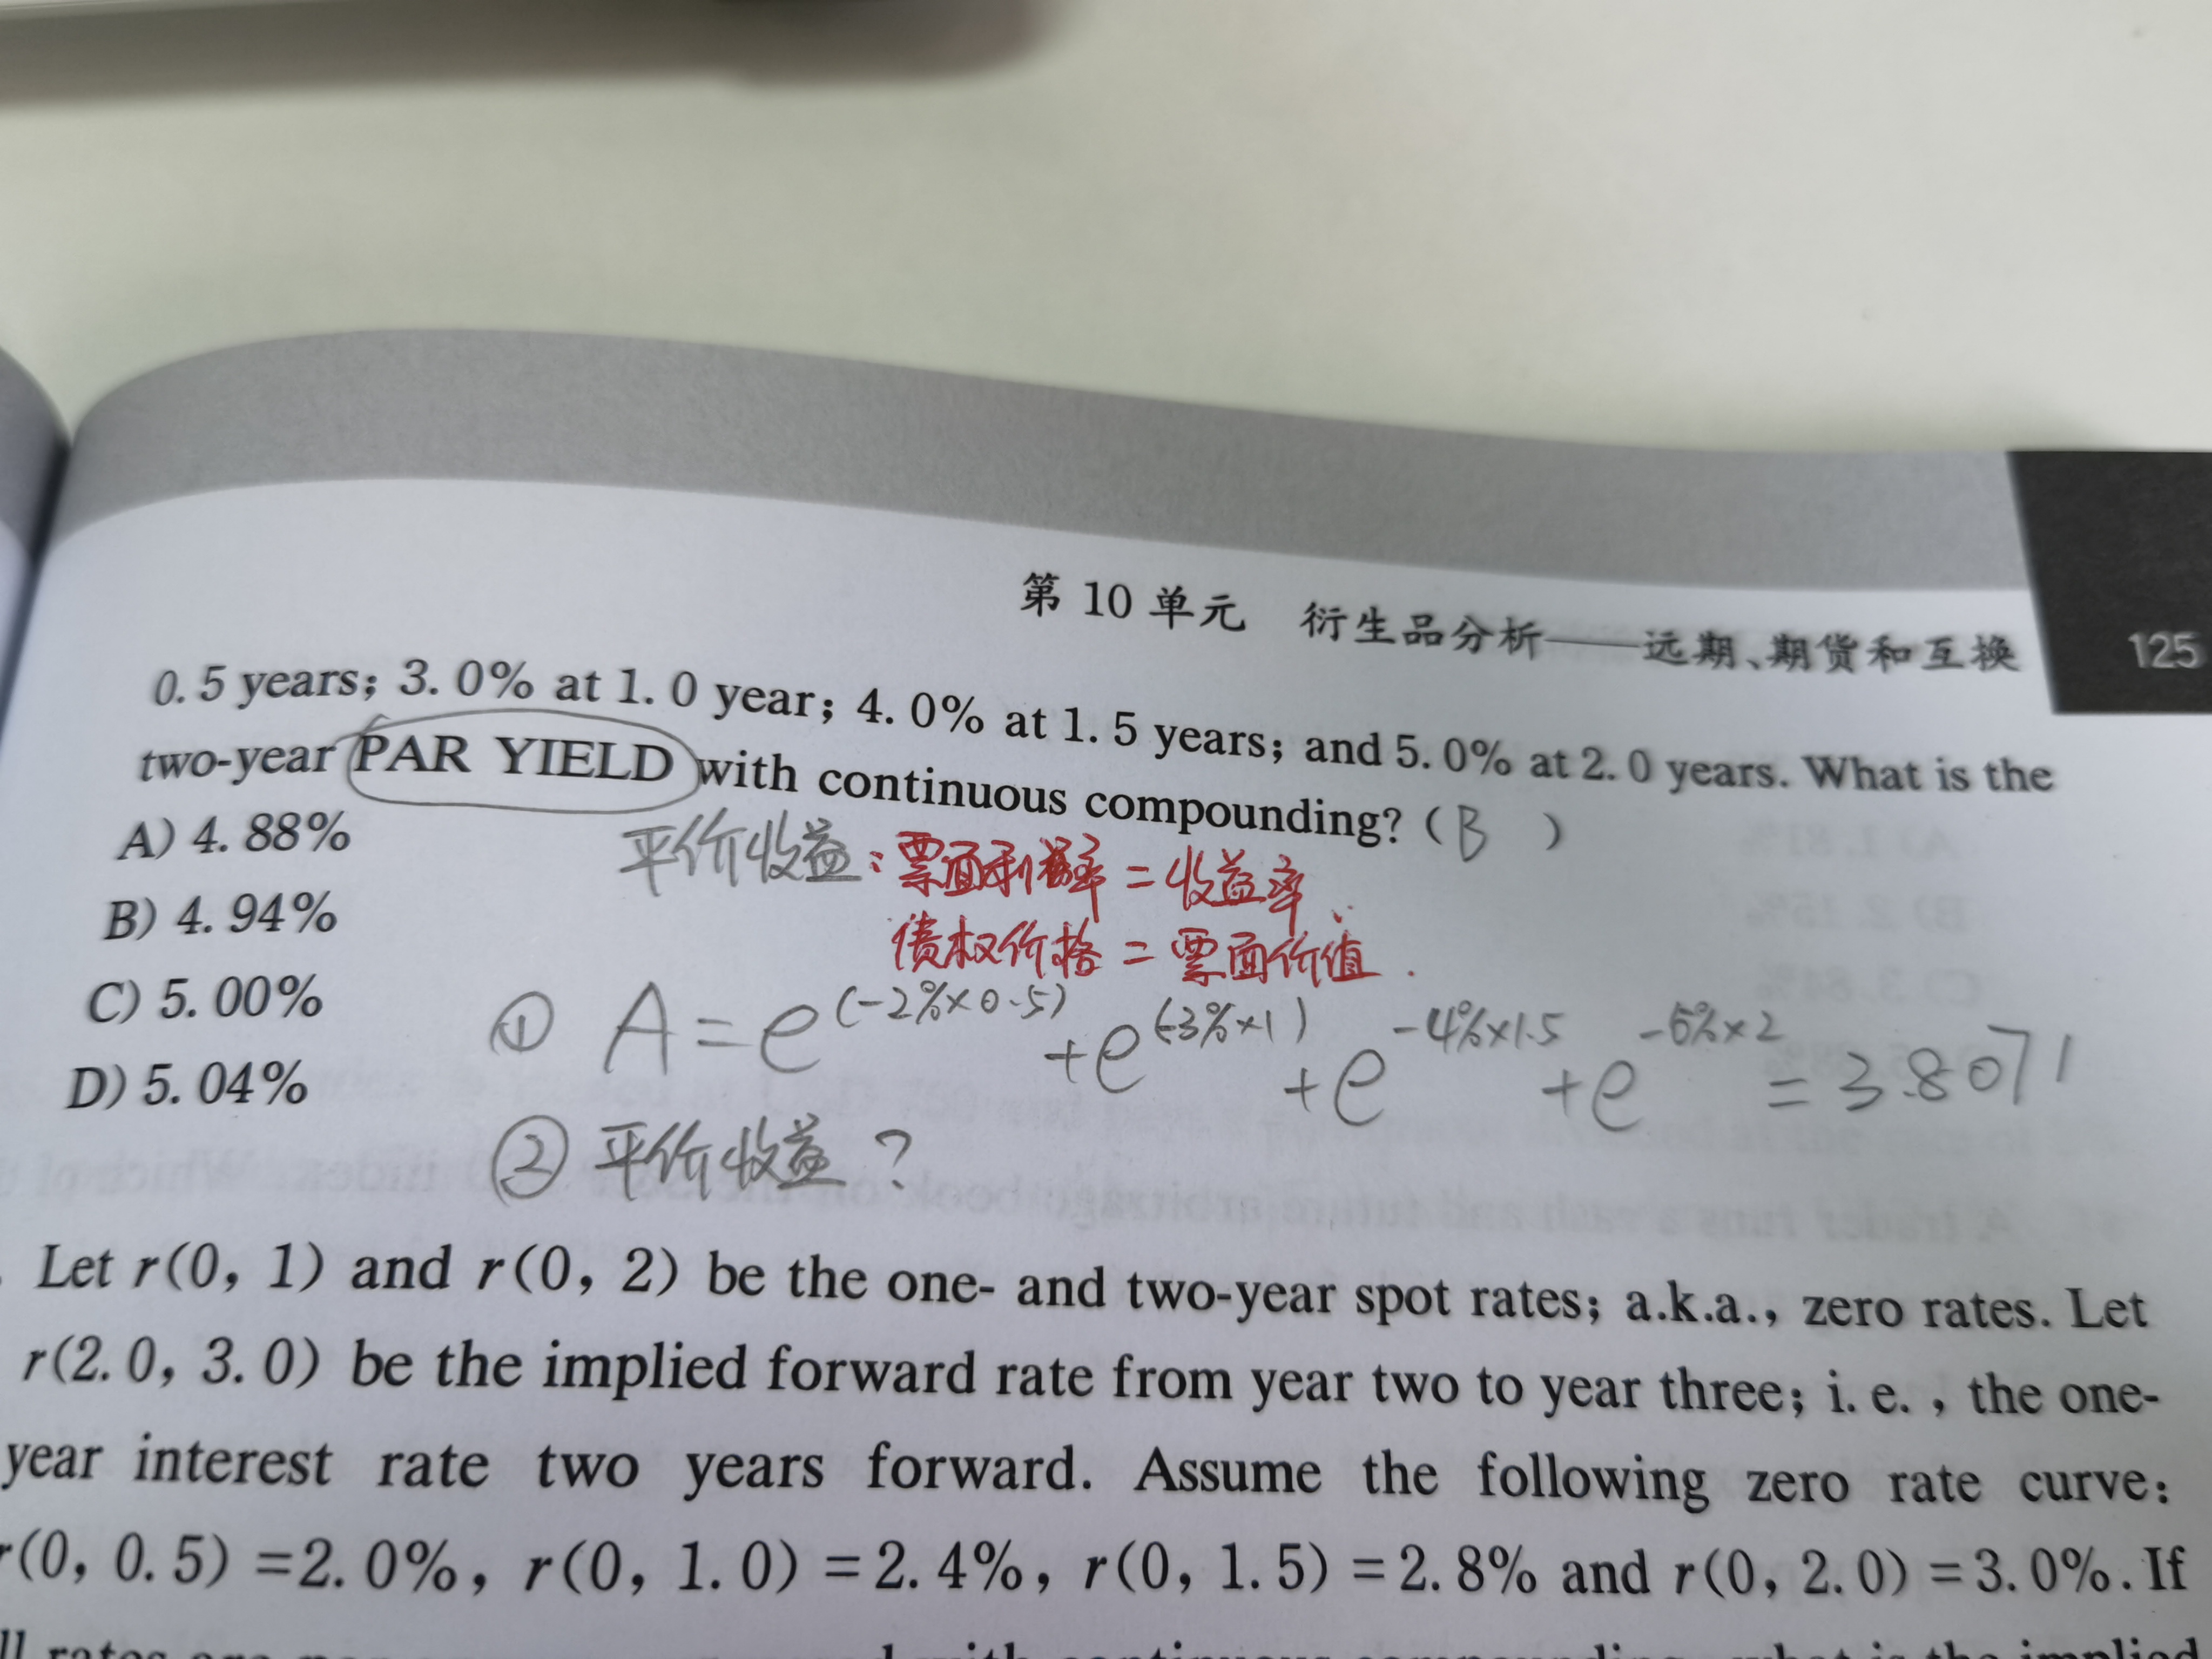 第 10 单元 衍生品分析——远期、期货和互换
125
0.5 years; 3.0% at 1.0 year; 4.0% at 1.5 years; and 5.0% at 2.0 years. What is the
two-year PAR YIELD with continuous compounding? ( B )
A) 4.88%
平价收益:票面利率 = 收益率
B) 4.94%
债权价格 = 票面价值.
C) 5.00%
① A = e^(-2%×0.5) + e^(-3%×1) + e^-4%×1.5 + e^-5%×2 = 3.8071
D) 5.04%
② 平价收益?
Let r(0, 1) and r(0, 2) be the one- and two-year spot rates; a.k.a., zero rates. Let
r(2.0, 3.0) be the implied forward rate from year two to year three; i.e., the one-
year interest rate two years forward. Assume the following zero rate curve:
r(0, 0.5) =2.0%, r(0, 1.0) =2.4%, r(0, 1.5) =2.8% and r(0, 2.0) =3.0%. If